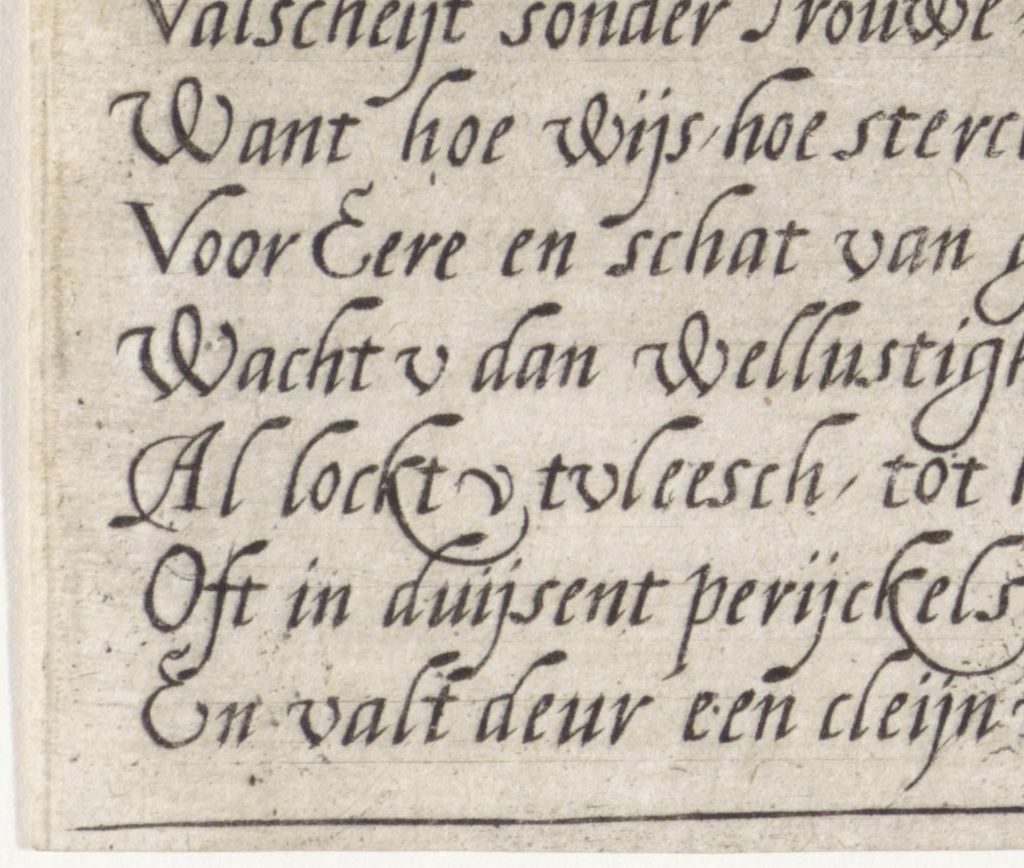 Valscheijt sonder Trouwe
Want hoe wijs/hoe sterc
Voor Eere en schat van
Wacht v dan wellustigh
Al lockt v tvleesch/ tot
Oft in duijsent perijckels
En valt deur een cleijn